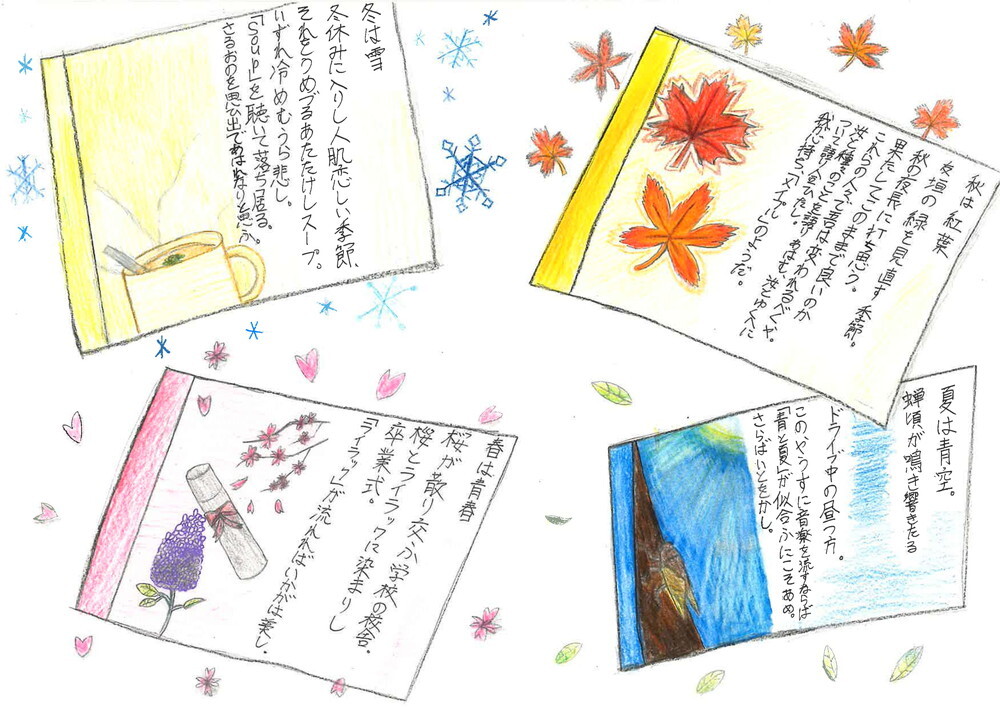 春は青春
桜が散り交ふ学校の校舎.
桜とライラックに染まりし
卒業式。
「ライラック」が流れればいかがは楽し.
夏は青空。
蝉頃が鳴き響きたる
ドライブ中の昼つ方。
このやうすに音楽を流すならば
「青と夏」が似合ふにこそあめ。
さらばいとをかし。
秋は紅葉
友垣の緑を見直す季節。
秋の夜長に打ち思う。
果たしてこのままで良いのか
これらの人々で吾は変われるべくや。
渋と種々のことを語り
ついて語り合ひたし。あはむ、渋をゆく人に
我が心持ち「メイプル」のようだ。
冬は雪
冬休みに入りし人肌恋しい季節
それとうめづるあたたけしスープ。
いずれ冷めむうら悲し。
「Soup」を聴いて落つ居る。
さるおのを思ひ出であはれなりと思ふ。